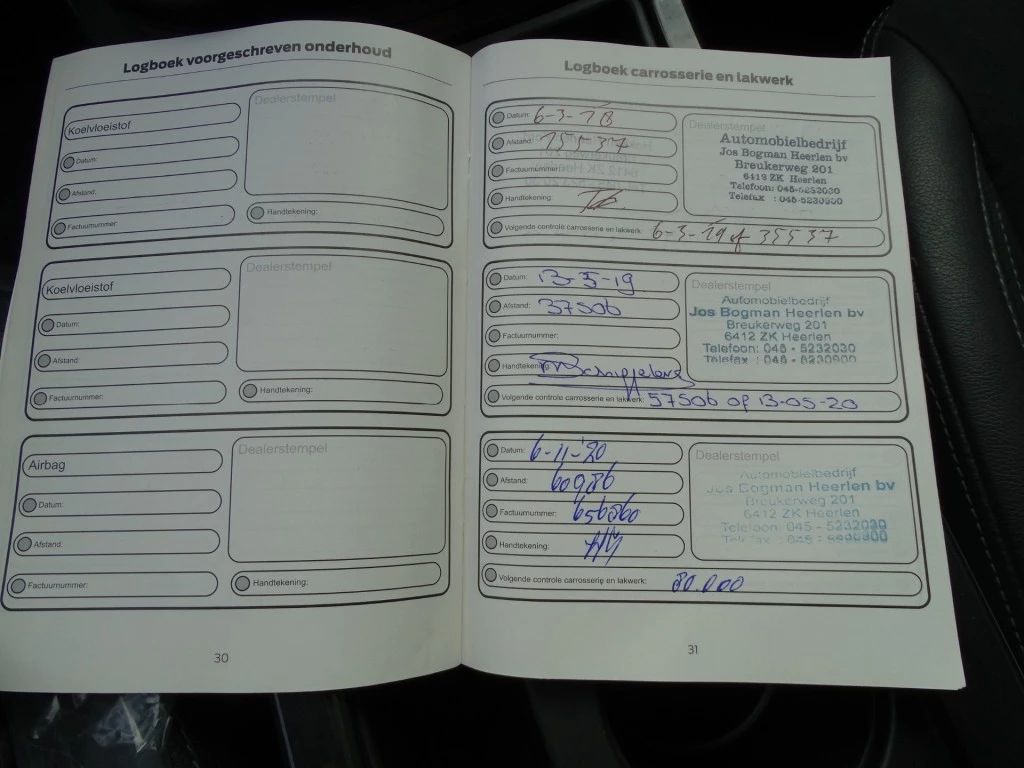 Logboek voorgeschreven onderhoud
Koelvloeistof
Dealerstempel
Datum:
Afstand:
Factuurnummer:
Handtekening:
Koelvloeistof
Dealerstempel
Datum:
Afstand:
Factuurnummer:
Handtekening:
Airbag
Dealerstempel
Datum:
Afstand:
Factuurnummer:
Handtekening:
30
Logboek carrosserie en lakwerk
Datum: 6-3-18
Afstand: 15537
Factuurnummer:
Handtekening:
Dealerstempel
Automobielbedrijf
Jos Bogman Heerlen bv
Breukerweg 201
6412 ZK Heerlen
Telefoon: 045-5232030
Telefax : 045-5230900
Volgende controle carrosserie en lakwerk: 6-3-19 of 35537
Datum: 13-5-19
Afstand: 37506
Factuurnummer:
Handtekening:
Dealerstempel
Automobielbedrijf
Jos Bogman Heerlen bv
Breukerweg 201
6412 ZK Heerlen
Telefoon: 045 - 5232030
Telefax : 045 - 5230900
Volgende controle carrosserie en lakwerk: 57506 op 13-05-20
Datum: 6-11-'20
Afstand: 60986
Factuurnummer: 656860
Handtekening:
Dealerstempel
Automobielbedrijf
Jos Bogman Heerlen bv
Breukerweg 201
6412 ZK Heerlen
Telefoon: 045 - 5232030
Telefax : 045 - 5230900
Volgende controle carrosserie en lakwerk: 80.000
31